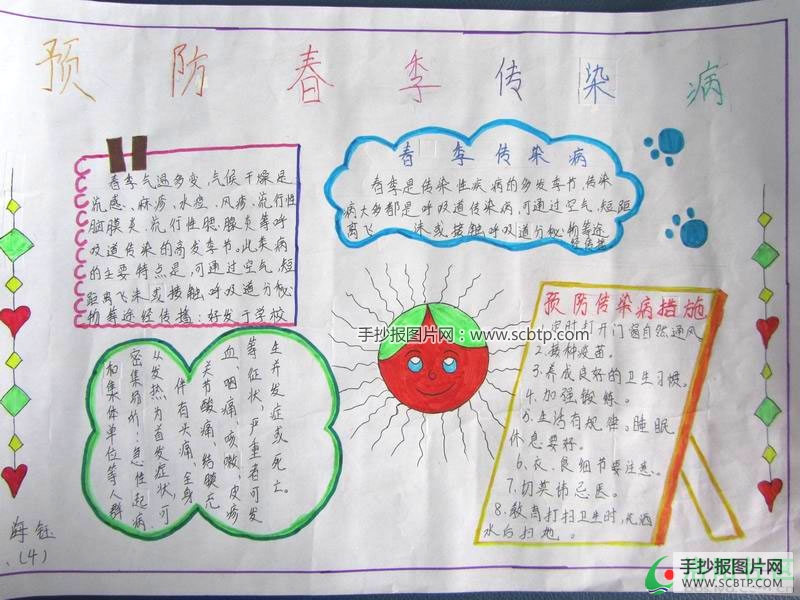 预防春季传染病
春季气温多变,气候干燥是
流感、麻疹、水痘、风疹、流行性
脑膜炎、流行性腮腺炎等呼
吸道传染的高发季节,此类病
的主要特点是,可通过空气,短
距离飞沫或接触呼吸道分秘
物等途经传播:好发于学校
春季传染病
春季是传染性疾病的多发季节,传染
病大多都是呼吸道传染病,可通过空气,短距
离飞 沫或接触呼吸道分秘物等途
经传播
手抄报图片网:www.scbtp.com
和集体单位等人群
密集场所:急性起病,
以发热为首发症状,可
件有头痛、全身
关节酸痛、结膜充
血、咽痛、咳嗽、皮疹
等症状,严重者可发
生并发症或死亡。
预防传染病措施
1.定时打开门窗自然通风
2.接种疫苗。
3.养成良好的卫生习惯。
4.加强锻炼。
5.生活有规律。睡眠
休息要好。
6.衣、食细节要注意。
7.切莫讳忌医。
8.教育打扫卫生时,先洒
水后扫地。
海钰
(4)
手抄报图片网
www.SCBTP.COM